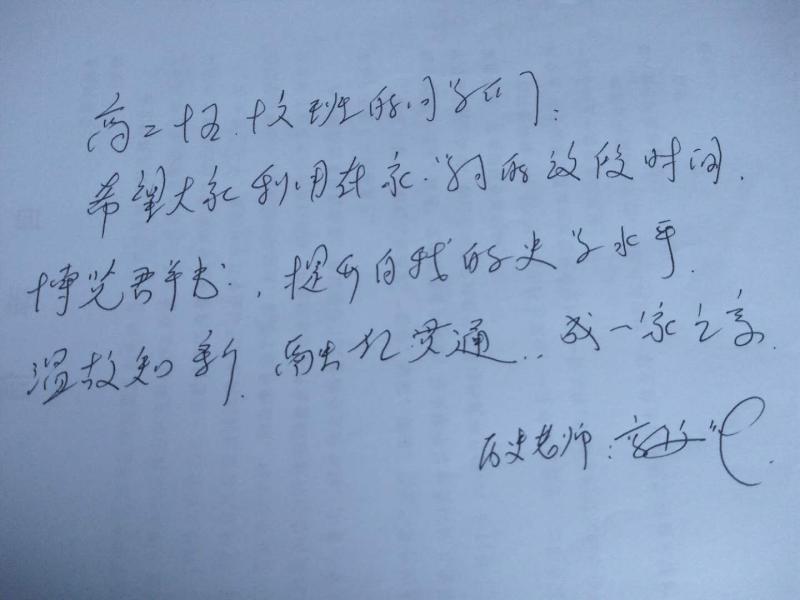 高二十五.十六班的同学们:
希望大家利用在家学习的这段时间.
博览群书,提升自我的史学水平.
温故知新.融会贯通..成一家之言.
历史老师: